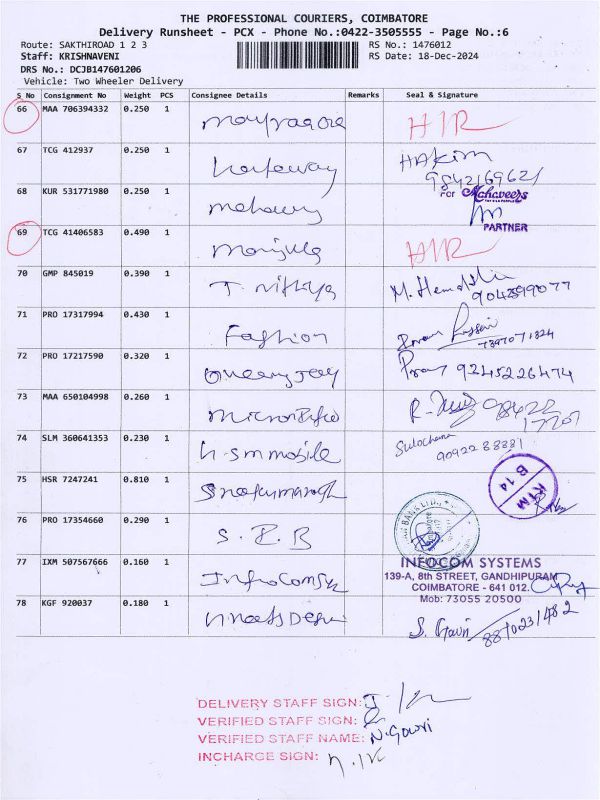 THE PROFESSIONAL COURIERS, COIMBATORE
Delivery Runsheet - PCX - Phone No.:0422-3505555 - Page No.:6
Route: SAKTHIROAD 1 2 3 RS No.: 1476012
Staff: KRISHNAVENI RS Date: 18-Dec-2024
DRS No.: DCJB147601206
Vehicle: Two Wheeler Delivery
S No Consignment No Weight PCS Consignee Details Remarks Seal & Signature
66 MAA 706394332 0.250 1
67 TCG 412937 0.250 1 HAKIM
9842169621
68 KUR 531771980 0.250 1 For Mahaveers
PARTNER
69 TCG 41406583 0.490 1 Manjula
70 GMP 845019 0.390 1 T. Nithya M.
71 PRO 17317994 0.430 1 Fashion
7397071324
72 PRO 17217590 0.320 1 9245226474
73 MAA 650104998 0.260 1
74 SLM 360641353 0.230 1 h.sm mobile Sulochana
9092288881
75 HSR 7247241 0.810 1 KTM
B 14
76 PRO 17354660 0.290 1 S. R. B BANK LTD.
77 IXM 507567666 0.160 1 INFOCOM SYSTEMS
139-A, 8th STREET, GANDHIPURAM
COIMBATORE - 641 012.
Mob: 73055 20500
78 KGF 920037 0.180 1 S. Gowri
8870231482
DELIVERY STAFF SIGN:
VERIFIED STAFF SIGN:
VERIFIED STAFF NAME: N.Gowri
INCHARGE SIGN: